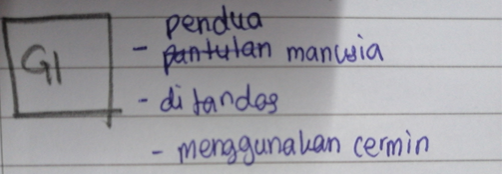 G1
pendua
- pantulan manusia
- di tandas
- menggunakan cermin